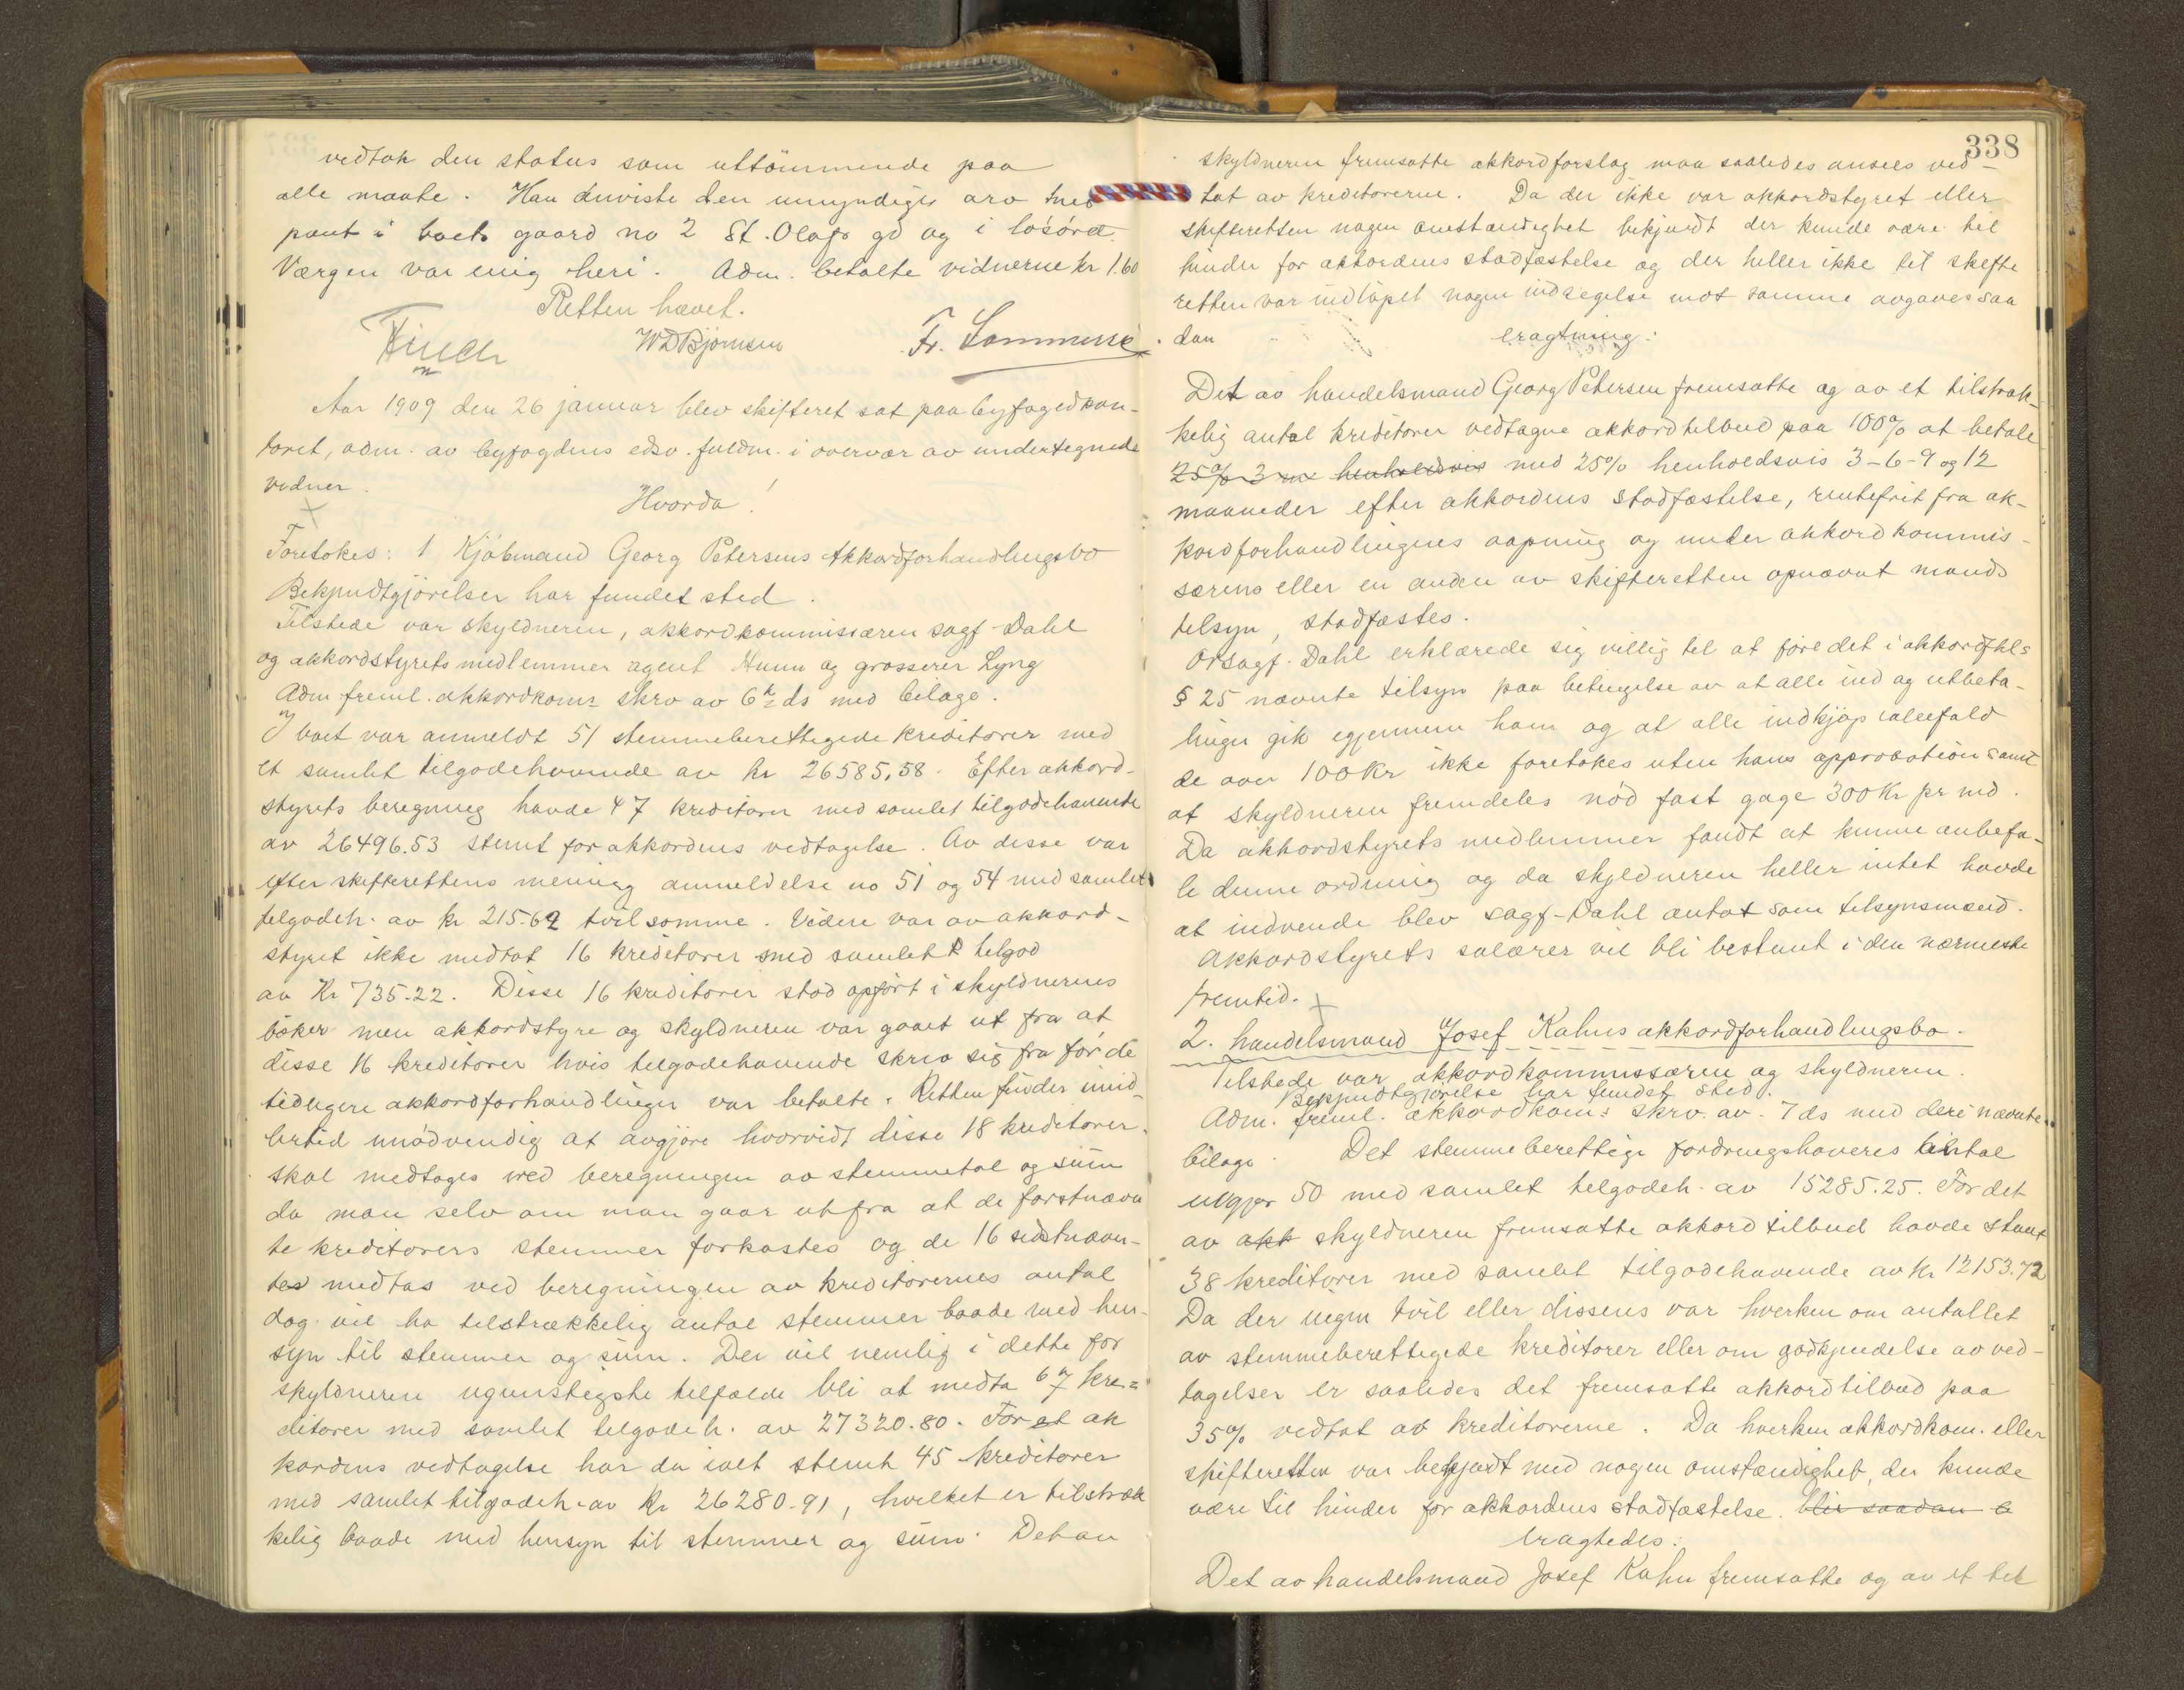 vedtok den status som uttömmende paa
alle maate. Han anviste den umyndiges arv med
pant i boets gaard no 2 St. Olafs gd og i lösöret.
Værgen var enig heri. Adm. betalte vidnerne kr 1.60
Retten hævet.
Finch WDBjörnsen Fr. Sommersé
Aar 1909 den 26 januar blev skifteret sat paa byfogedkon-
toret, adm. av byfogdens edsv. fuldm. i overvær av undertegnede
vidner.
Hvorda!
Foretokes: 1 Kjöbmand Georg Petersens Akkordforhandlingsbo
Bekjendtgjörelser har fundet sted.
Tilstede var skyldneren, akkordkommisæren sagf-Dahl
og akkordstyrets medlemmer agent Hunn og grosserer Lyng
Adm freml. akkordkoms skrv av 6te ds med bilage.
I boet var anmeldt 51 stemmeberettigede kreditorer med
et samlet tilgodehavende av kr 26585,58. Efter akkord-
styrets beregning havde 47 kreditorer med samlet tilgodehavende
av 26496.53 stemt for akkordens vedtagelse. Av disse var
efter skifterettens mening anmeldelse no 51 og 54 med samlet
tilgodeh. av kr 215.62 tvilsomme. Videre var av akkord-
styret ikke medtat 16 kreditorer med samlet tilgod
av Kr 735.22. Disse 16 kreditorer stod opfört i skyldnerens
böker men akkordstyre og skyldneren var gaaet ut fra at
disse 16 kreditorer hvis tilgodehavende skrev sig fra för de
tidligere akkordforhandlinger var betalte. Retten finder imid-
lertid unödvendig at avgjöre hvorvidt disse 18 kreditorer
skal medtages ved beregningen av stemmetal og sum
da man selv om man gaar ut fra at de förstnævn
te kreditorers stemmer forkastes og de 16 sidstnævn-
tes medtas ved beregningen av kreditorernes antal
dog vil ha tilstrækkelig antal stemmer baade med hen-
syn til stemmer og sum. Der vil nemlig i dette for
skyldneren ugunstigste tilfælde bli at medta 67 kre-
ditorer med samlet tilgodeh. av 27320.80. For et ak
kordens vedtagelse har da ialt stemt 45 kreditorer
med samlet tilgodeh. av Kr 26280.91, hvilket er tilstræk
kelig baade med hensyn til stemmer og sum. Det av
338
skyldneren fremsatte akkordforslag maa saaledes ansees ved-
tat av kreditorerne. Da der ikke var akkordstyret eller
skifteretten nogen omstændighet bekjendt der kunde være til
hinder for akkordens stadfæstelse og der heller ikke til skifte
retten var indlöpet nogen indsigelse mot samme avgaves saa
dan eragtning:
Det av handelsmand Georg Petersen fremsatte og av et tilstræk-
kelig antal kreditorer vedtagne akkordtilbud paa 100% at betale
25% 3 henholdsvis med 25% henholdsvis 3-6-9 og 12
maaneder efter akkordens stadfæstelse, rentefrit fra ak-
kordforhandlingens aapning og under akkordkommis-
særens eller en anden av skifteretten opnævnt mands
tilsyn, stadfæstes.
Orsagf. Dahl erklærede sig villig til at före det i akkordfhls
§ 25 nævnte tilsyn paa betingelse av at alle ind og utbeta-
linger gik igjennem ham og at alle indkjöp ialfald
de over 100 Kr ikke foretokes uten hans approbation samt
at skyldneren fremdeles nöd fast gage 300 Kr pr md.
Da akkordstyrets medlemmer fandt at kunne anbefa-
le denne ordning og da skyldneren heller intet havde
at indvende blev sagf-Dahl antat som tilsynsmand.
Akkordstyrets salærer vil bli bestemt i den nærmeste
fremtid.
2. handelsmand Josef Kahns akkordforhandlingsbo.
Tilstede var akkordkommissæren og skyldneren.
Bekjendtgjörelse har fundet sted.
Adm. freml. akkordkom: skrv. av. 7 ds med deri nævnte
bilage. Det stemmeberettige fordringshaveres antal
utgjör 50 med samlet tilgodeh. av 15285.25. For det
av akk skyldneren fremsatte akkordtilbud havde stemt
38 kreditorer med samlet tilgodehavende av Kr 12153.72
Da der ingen tvil eller dissens var hverken om antallet
av stemmeberettigede kreditorer eller om godkjendelse av ved-
tagelser er saaledes det fremsatte akkordtilbud paa
35% vedtat av kreditorerne. Da hverken akkordkom. eller
skifteretten var bekjendt med nogen omstændighet, der kunde
være til hinder for akkordens stadfæstelse. blir saadan e
eragtedes:
Det av handelsmand Josef Kahn fremsatte og av et til